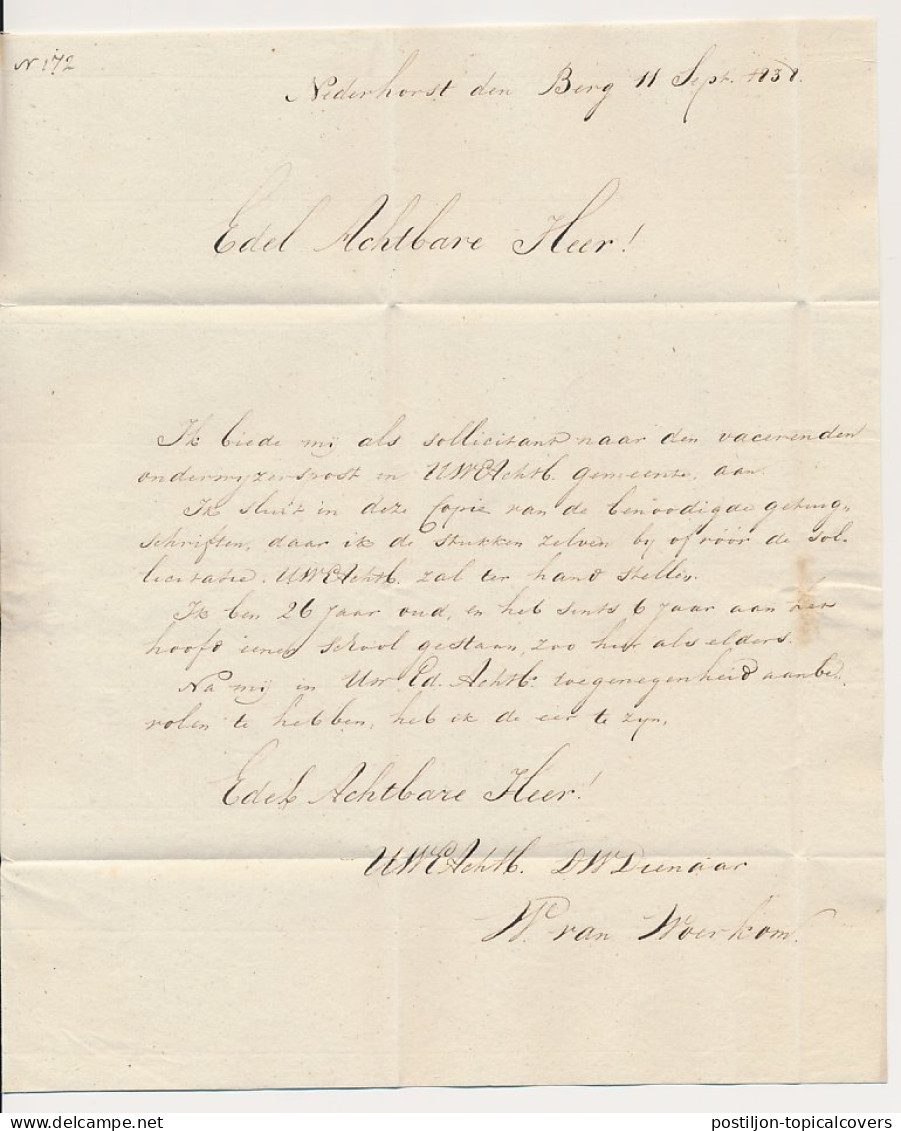 N 172
Nederhorst den Berg 11 Sept. 1838.
Edel Achtbare Heer!
Ik biede mij als sollicitant naar den vacerenden
onderwyzerspost in UWEAchtb. gemeente, aan.
Ik sluit in deze Copie van de benoodigde getuig„
schriften, daar ik de stukken zelven by of vóór de sol„
licitatie. UWEAchtb. zal ter hand stellen.
Ik ben 26 jaar oud, en heb sints 6 jaar aan het
hoofd eener school gestaan, zoo hier als elders.
Na mij in Uw Ed. Achtb. toegenegenheid aanbe„
volen te hebben, heb ik de eer te zyn,
Edel Achtbare Heer!
UWEAchtb. DWDienaar
W. van Woerkom.
postiljon-topicalcovers